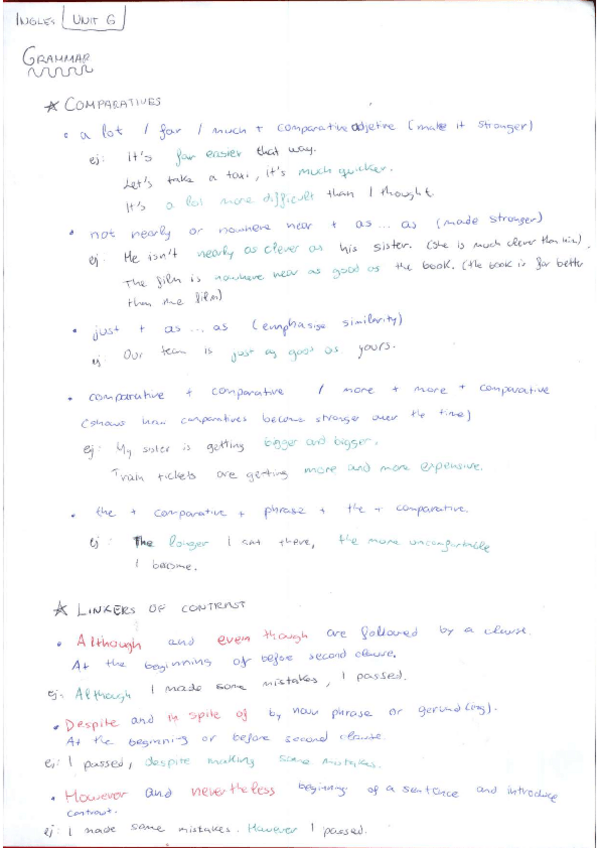 INGLES UNIT 6
GRAMMAR
★ COMPARATIVES
• a lot / far / much + comparative adjetive (make it stronger)
ej: It's far easier that way.
Let's take a taxi, it's much quicker.
It's a lot more difficult than I thought.
• not nearly or nowhere near + as ... as (made stronger)
ej: He isn't nearly as clever as his sister. (she is much clever than him).
The film is nowhere near as good as the book. (the book is far better
than the film)
• just + as ... as (emphasise similarity)
ej: Our team is just as good as yours.
• comparative + comparative / more + more + comparative
(shows how comparatives become stronger over the time)
ej: My sister is getting bigger and bigger.
Train tickets are getting more and more expensive.
• the + comparative + phrase + the + comparative.
ej: The longer I sat there, the more uncomfortable
I became.
★ LINKERS OF CONTRAST
• Although and even though are followed by a clause.
At the beginning or before second clause.
ej: Although I made some mistakes, I passed.
• Despite and in spite of by noun phrase or gerund (ing).
At the beginning or before second clause.
ej: I passed, despite making some mistakes.
• However and nevertheless beginning of a sentence and introduce
contrast.
ej: I made some mistakes. However I passed.